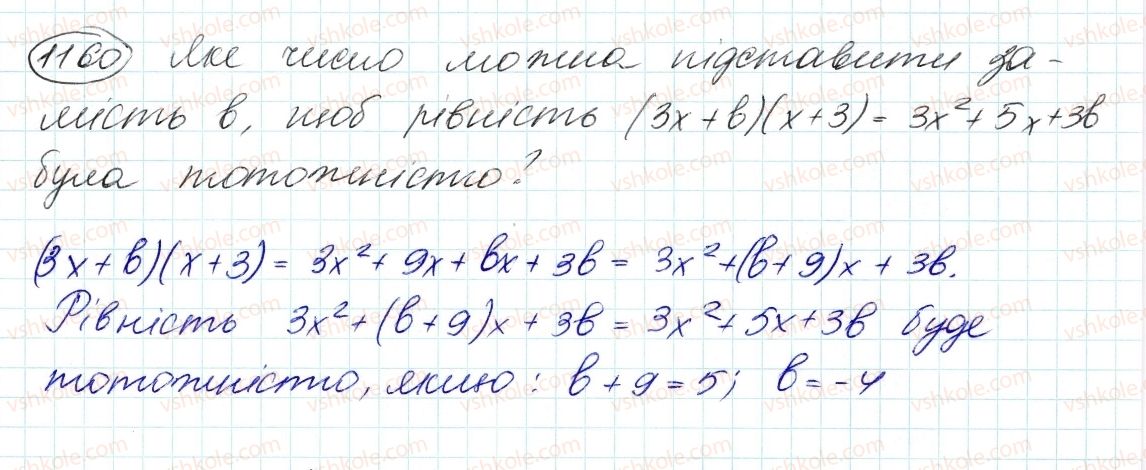 1160 Яке число можна підставити за-
мість b, щоб рівність (3x+b)(x+3) = 3x²+5x+3b
була тотожністю?
(3x+b)(x+3) = 3x²+9x+bx+3b = 3x²+(b+9)x+3b.
Рівність 3x²+(b+9)x+3b = 3x²+5x+3b буде
тотожністю, якщо: b+9=5; b=-4